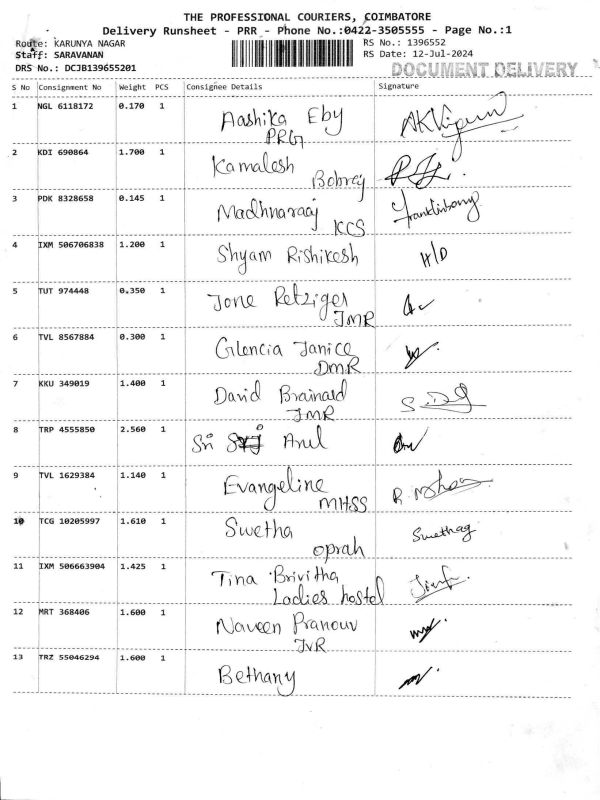 THE PROFESSIONAL COURIERS, COIMBATORE
Delivery Runsheet - PRR - Phone No.:0422-3505555 - Page No.:1
Route: KARUNYA NAGAR
RS No.: 1396552
Staff: SARAVANAN
RS Date: 12-Jul-2024
DRS No.: DCJB139655201
DOCUMENT DELIVERY
S No Consignment No Weight PCS Consignee Details Signature
1 NGL 6118172 0.170 1 Aashika Eby
PRG
2 KDI 690864 1.700 1 Kamalesh
Bobrej
3 PDK 8328658 0.145 1 Madhnaraaj
KCS
4 IXM 506706838 1.200 1 Shyam Rishikesh H/D
5 TUT 974448 0.350 1 Jone Retziger
JMR
6 TVL 8567884 0.300 1 Glencia Janice
DMR
7 KKU 349019 1.400 1 David Brainard
JMR
8 TRP 4555850 2.560 1 Sri Arul
9 TVL 1629384 1.140 1 Evangeline
MHSS
10 TCG 10205997 1.610 1 Swetha Swethag
oprah
11 IXM 506663904 1.425 1 Tina Brivitha
Ladies hostel
12 MRT 368406 1.600 1 Naveen Pranouv
JVR
13 TRZ 55046294 1.600 1 Bethany